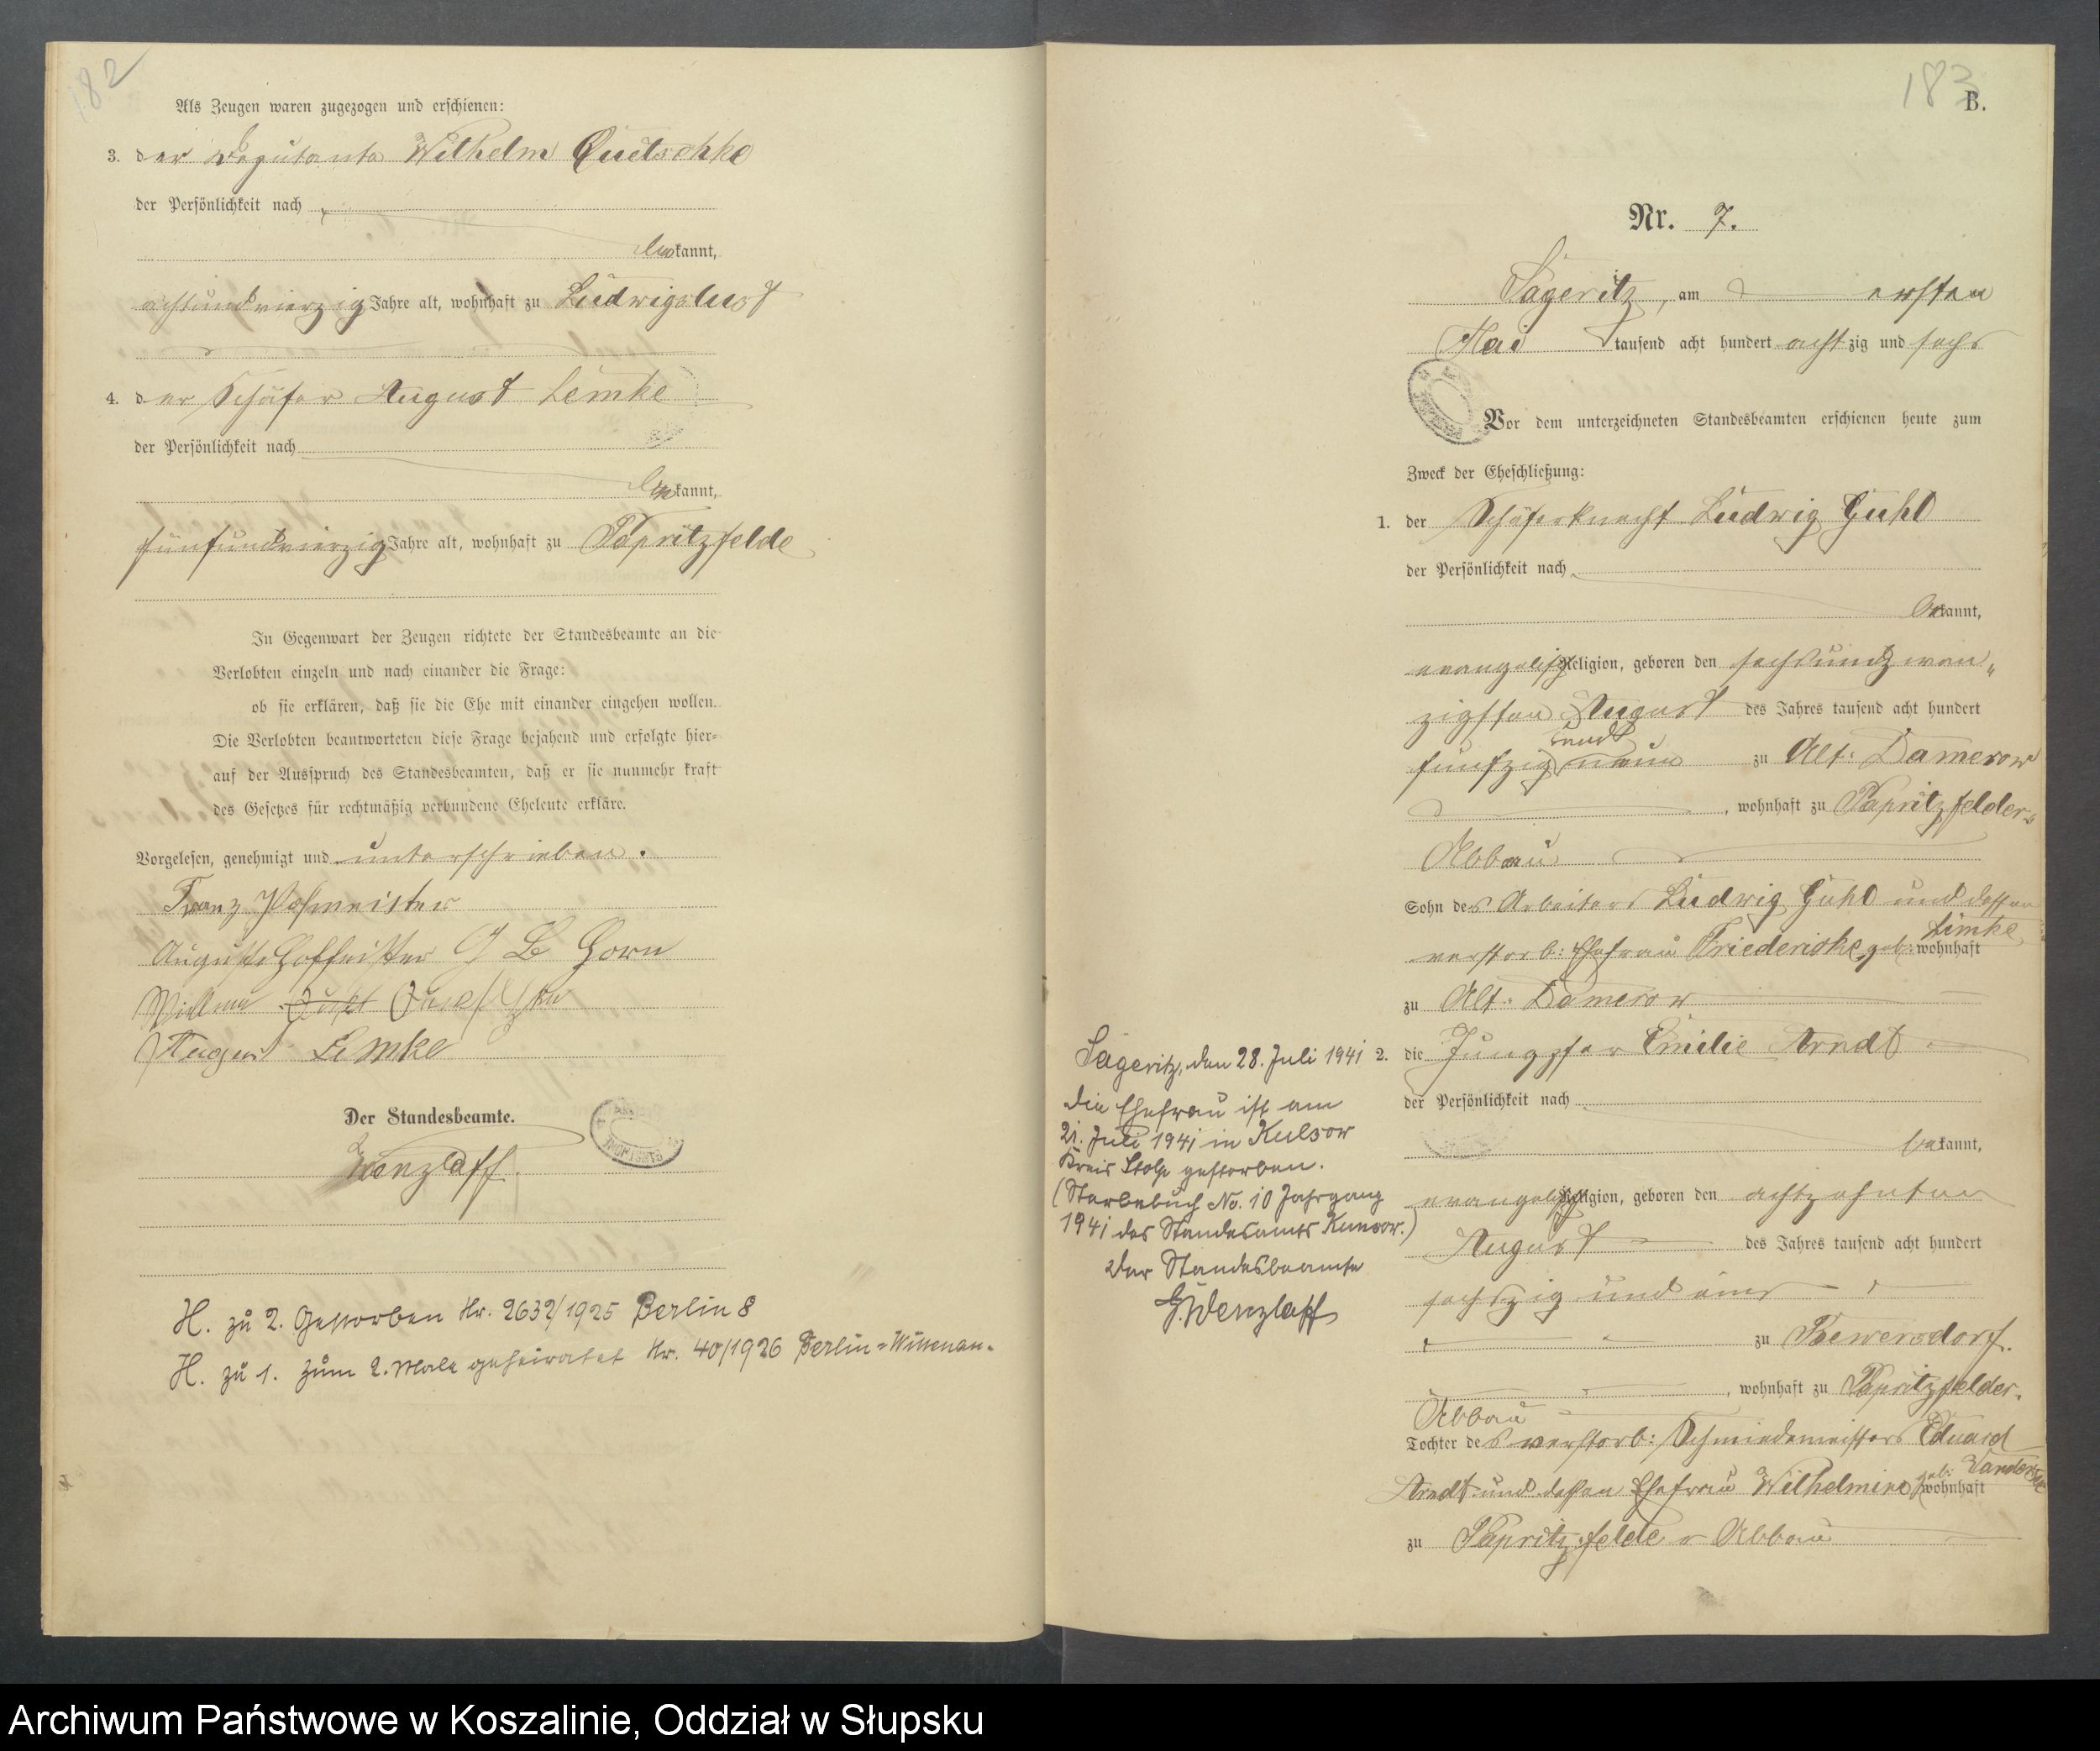 182
Als Zeugen waren zugezogen und erschienen:
3. der Deputante Wilhelm Quetschke
der Persönlichkeit nach
bekannt,
achtundvierzig Jahre alt, wohnhaft zu Ludwigslust
4. der Schäfer August Lemke
der Persönlichkeit nach
bekannt,
fünfundvierzig Jahre alt, wohnhaft zu Papritzfelde
In Gegenwart der Zeugen richtete der Standesbeamte an die
Verlobten einzeln und nach einander die Frage:
ob sie erklären, daß sie die Ehe mit einander eingehen wollen.
Die Verlobten beantworteten diese Frage bejahend und erfolgte hier-
auf der Ausspruch des Standesbeamten, daß er sie nunmehr kraft
des Gesetzes für rechtmäßig verbundene Eheleute erkläre.
Vorgelesen, genehmigt und unterschrieben.
Franz
Auguste Hoffmeister Horn
August Lemke
Der Standesbeamte.
Wenzlaff.
H. zu 2. Gestorben Nr. 2632/1925 Berlin 8
H. zu 1. Zum 2. Male geheiratet Nr. 40/1926 Berlin-Wittenau.
183
B.
Nr. 7.
Sageritz, am ersten
Mai tausend acht hundert achtzig und sechs
Vor dem unterzeichneten Standesbeamten erschienen heute zum
Zweck der Eheschließung:
1. der Schäferknecht Ludwig Guhl
der Persönlichkeit nach
bekannt,
evangelischer Religion, geboren den sechsundzwan„
zigsten August des Jahres tausend acht hundert
fünfzig und neun zu Alt: Damerow
, wohnhaft zu Papritzfelder-
Abbau
Sohn des Arbeiters Ludwig Guhl und dessen
verstorb: Ehefrau Friederike, geb: Limke wohnhaft
zu Alt: Damerow
2. die Jungfer Emilie Arndt
der Persönlichkeit nach
bekannt,
evangelischer Religion, geboren den achtzehnten
August des Jahres tausend acht hundert
sechszig und eins
zu Bewersdorf.
, wohnhaft zu Papritzfelder-
Abbau
Tochter des verstorb: Schmiedemeisters Eduard
Arndt und dessen Ehefrau Wilhelmine geb: wohnhaft
zu Papritzfelder Abbau
Sageritz, den 28. Juli 1941
Die Ehefrau ist am
21. Juli 1941 in Kulsow
Kreis Stolp gestorben.
(Sterbebuch No. 10 Jahrgang
1941 des Standesamts Kunsow.)
Der Standesbeamte
G. Wenzlaff
Archiwum Państwowe w Koszalinie, Oddział w Słupsku